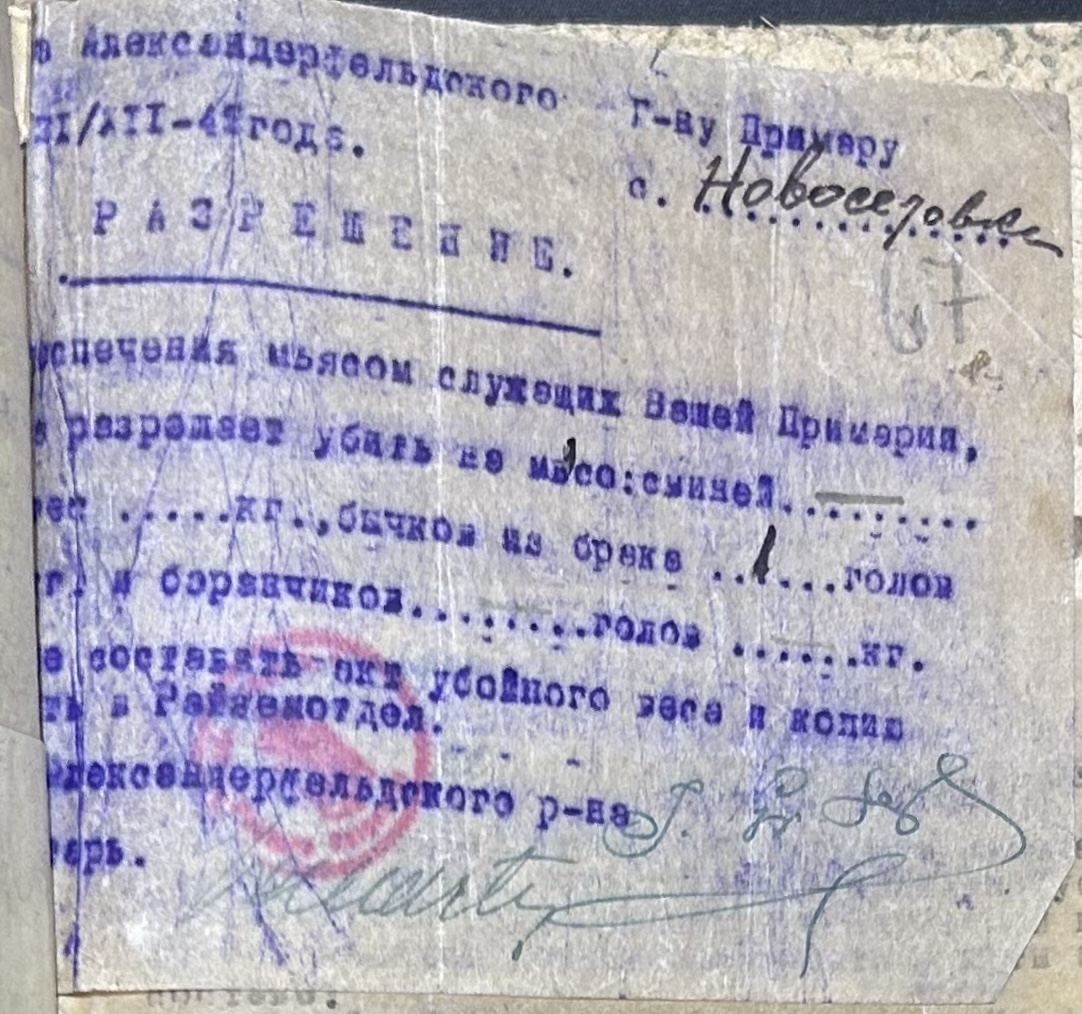 Александерфельдского
Г-ну Примару
с. Новоселовке
РАЗРЕШЕНИЕ.
67
спечения мьясом служащих Вашей Примарии,
разрешает убить на мясо:свиней..........
вес .....кг.,бычков из брака ..1...голов
кг. и боранчиков.........голов ......кг.
составить акт убойного веса и копию
ть в Райземотдел.
лександерфельдского р-на
арь.